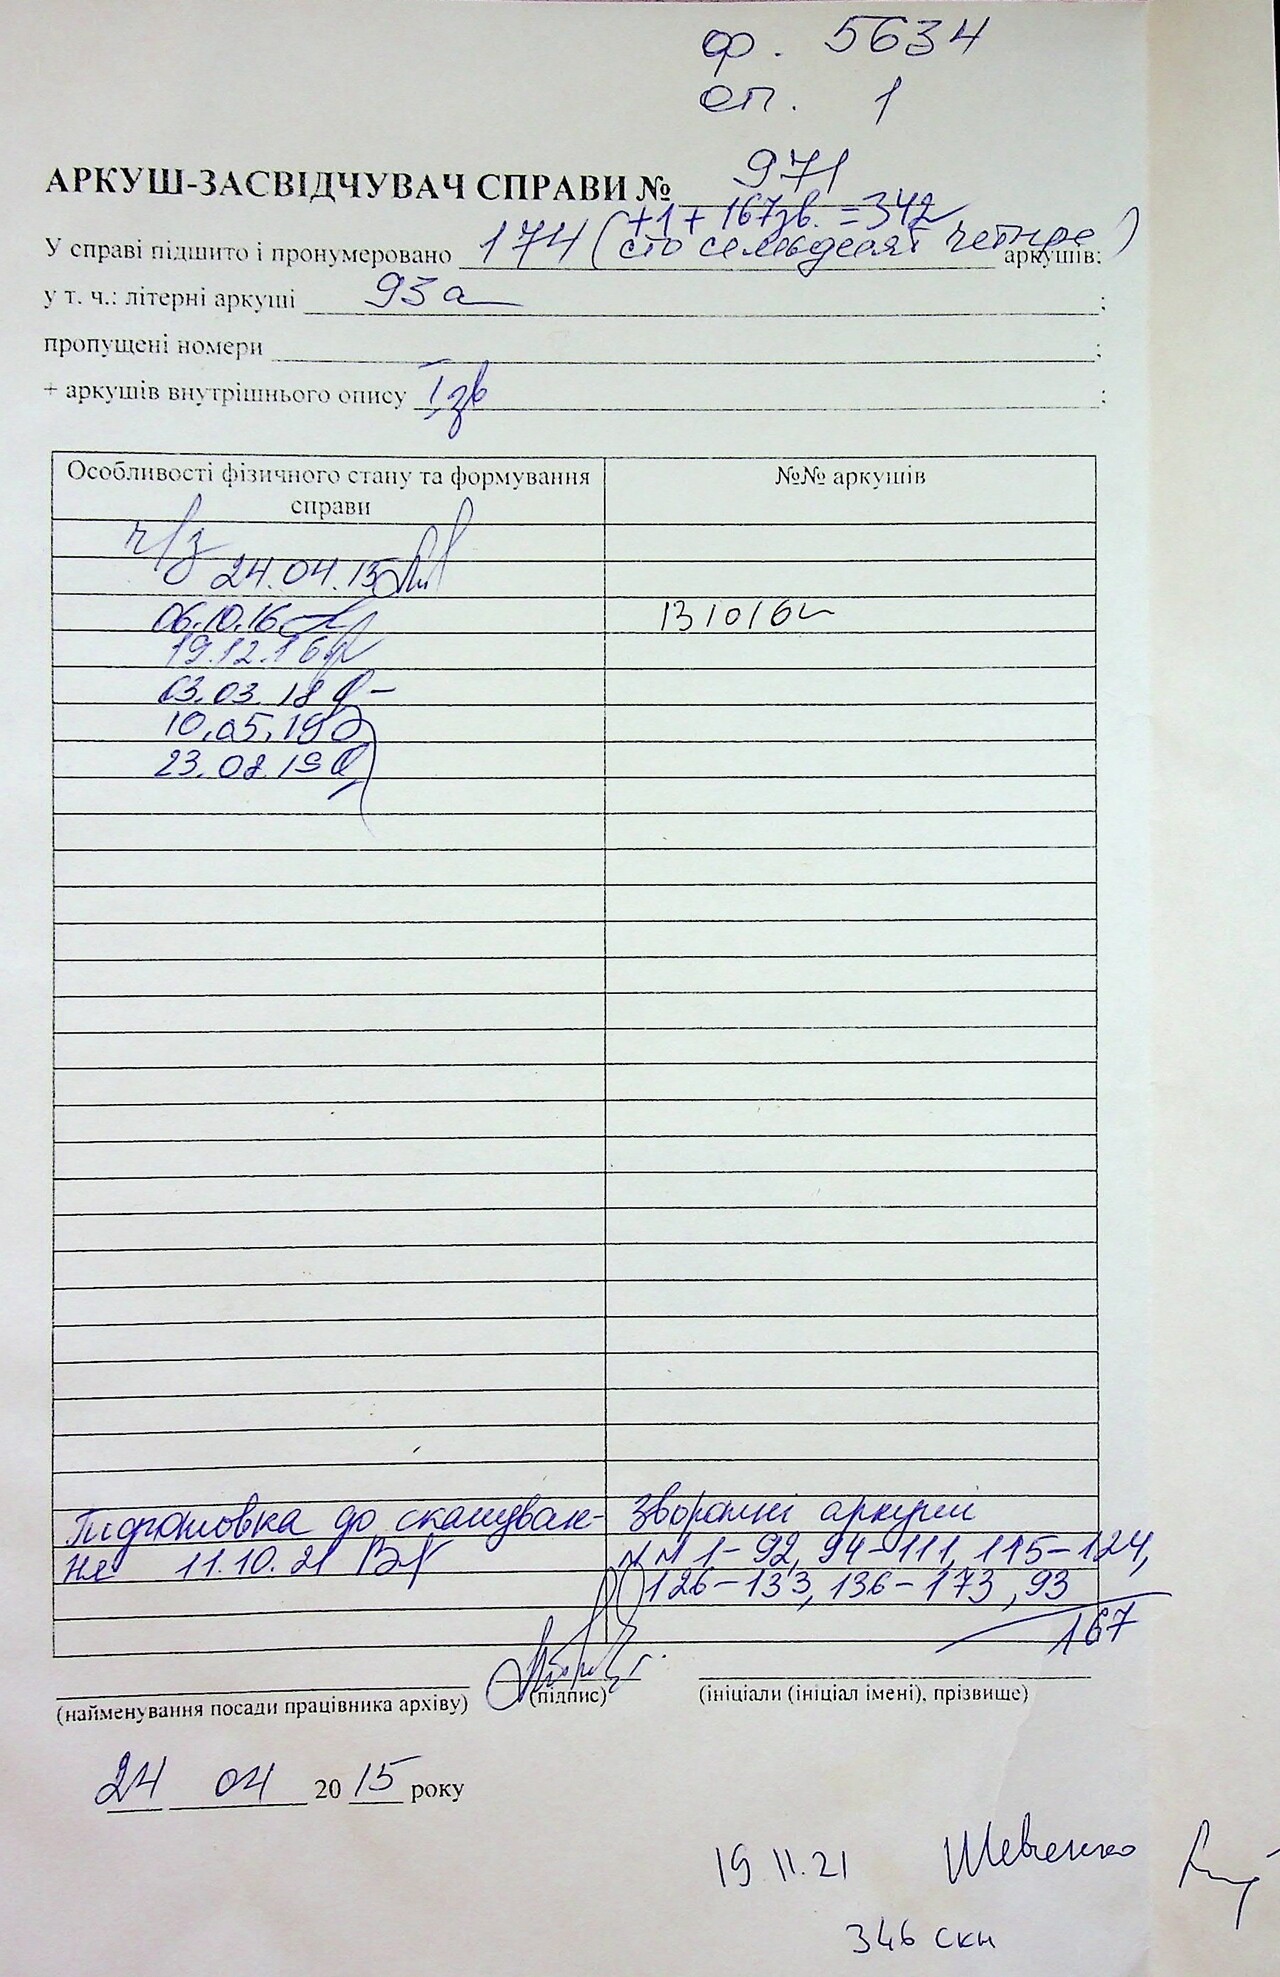 ф. 5634
оп. 1
АРКУШ-ЗАСВІДЧУВАЧ СПРАВИ № 971
+1+ 167зв. =342
У справі підшито і пронумеровано 174 (сто семьдесят четыре) аркушів;
у т. ч.: літерні аркуші 93а ;
пропущені номери ;
+ аркушів внутрішнього опису Iзв ;
Особливості фізичного стану та формування справи
№№ аркушів
ч/з
24.04.15
06.10.16
19.12.16
03.03.18
10.05.19
23.08.19
Підготовка до скануван- Зворотні аркуші
ня 11.10.21 №№ 1-92, 94-111, 115-124,
126-133, 136-173, 93
167
(найменування посади працівника архіву) (підпис) (ініціали (ініціал імені), прізвище)
24 04 20 15 року
19.11.21 Шевченко
346 скн